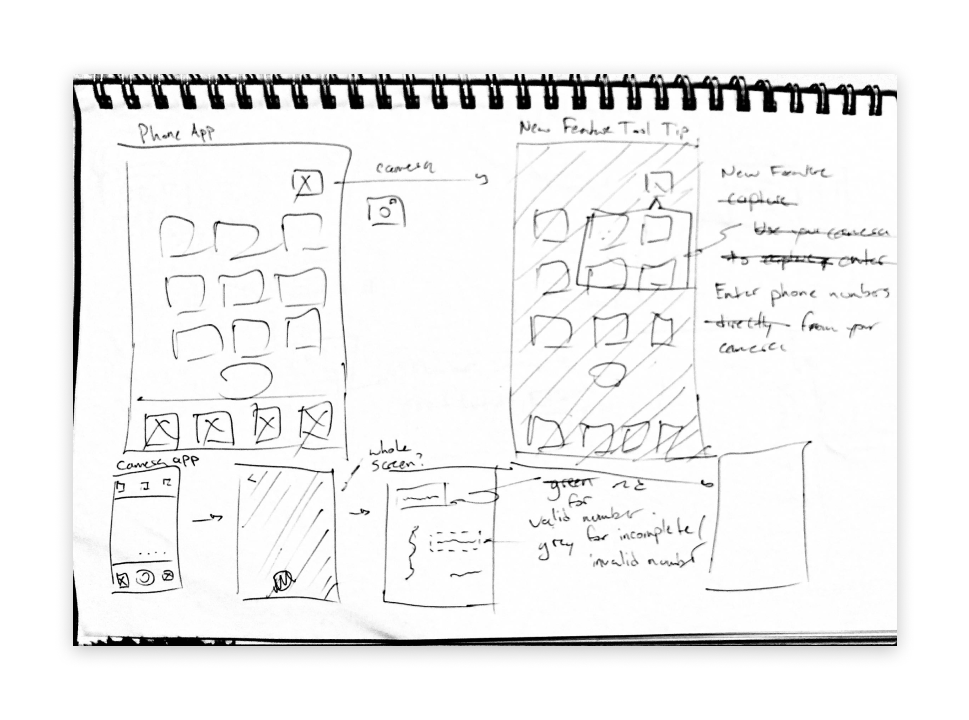 Phone App
camera
New Feature Tool Tip
New Feature
capture
Use your camera
to capture enter
Enter phone numbers
directly from your
camera
camera app
whole
screen?
green
for
valid number.
grey for incomplete/
invalid number